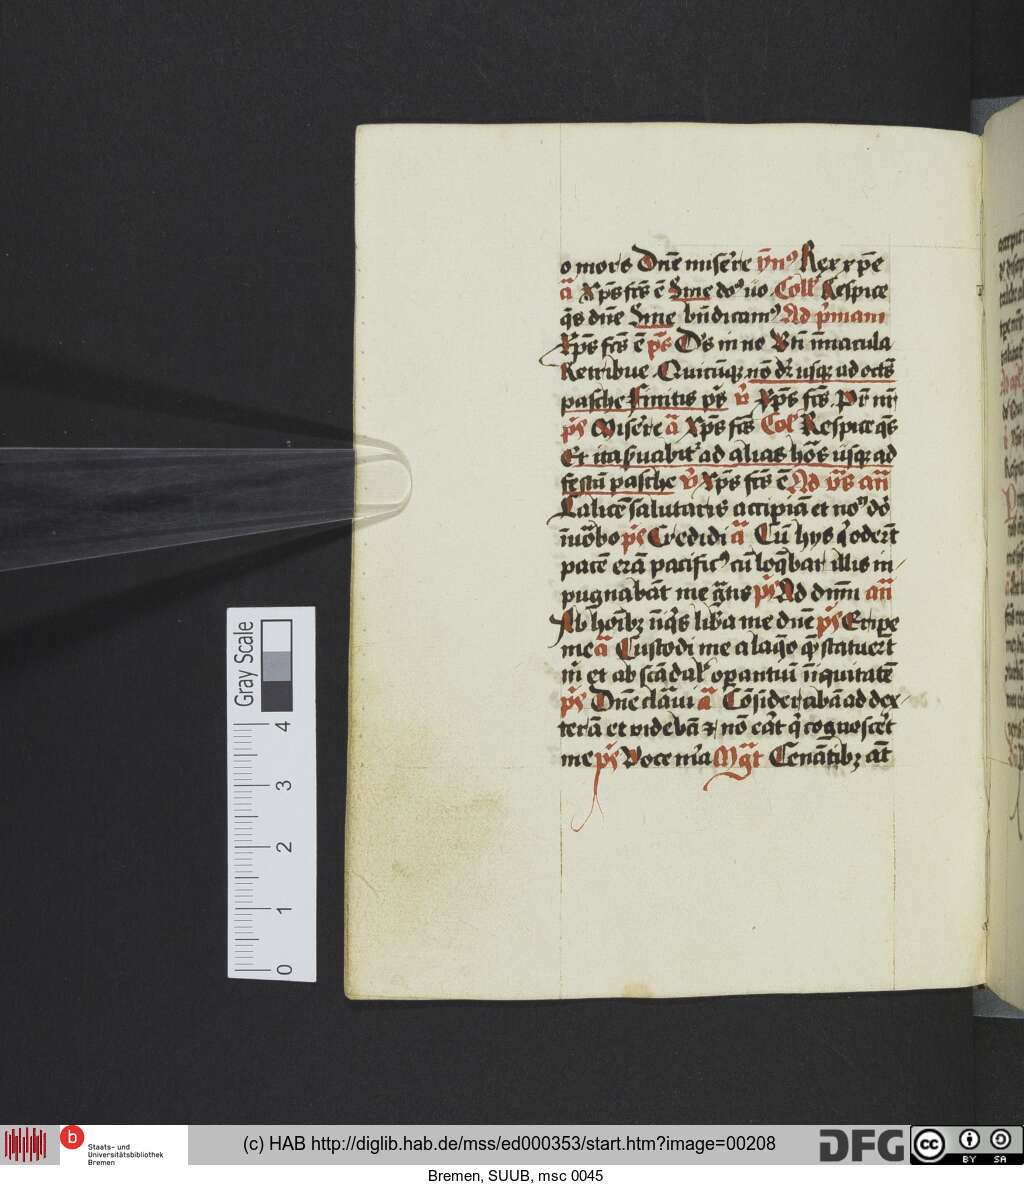 o mors Dn̄e miser̄e ȳnꝰ Rex xp̄e
a͞ Xp̄s fcūs ē Sine doꝰ uo Coll̄ Respice
q̄s dn̄e Sine bn̄dicamꝰ Ad p̄mam
Xp̄s fcūs ē ps̄ Ds̄ in no Bn̄ īmacula
Retribue Quicūqꝫ nō dr̄ usqꝫ ad octs̄
pasche Finitis ps̄ v̄ Xp̄s fcūs Pr̄ nr̄
ps̄ Miser̄e a͞ Xp̄s fcūs Col̄ Respice q̄s
Et ita ẜuabitᷣ ad alias hōs usqꝫ ad
festū pasche v̄ Xp̄s fcūs ē Ad vs̄ an̄
Calicē salutaris accipiā et noⁿ dō
īuōbo ps̄ Credidi a͞ Cū hys q̄ oder̄t
pacē erā pacificꝰ cū loq̄bar illis in
pugnabāt me gr̄tis ps̄ Ad dnm̄ an̄
Ab hoībꝫ īiqs̄ lib̄a me dn̄e ps̄ Eripe
me a͞ Custodi me a laq̄o qm̄ statuer̄t
m̄ et ab scādal̄ oꝑantiū īiquitatē
ps̄ Dn̄e clām̄ui a͞ Cōsiderabā ad dex
terā et videbā ⁊ nō eāt q̄ cognosce̅t
me ps̄ Voce m̄a Mgt̄ Cenātibꝫ āt
Gray Scale
4
3
2
1
0
b
Staats- und
Universitätsbibliothek
Bremen
(c) HAB http://diglib.hab.de/mss/ed000353/start.htm?image=00208
DFG
cc
BY SA
Bremen, SUUB, msc 0045